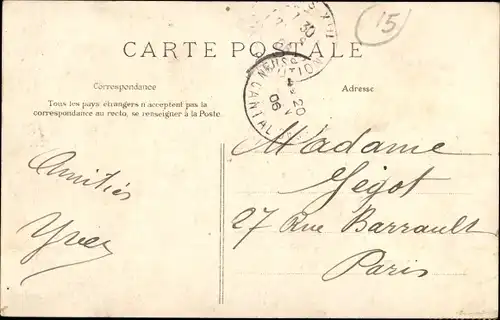 15
CARTE POSTALE
Correspondance
Adresse
Tous les pays étrangers n'acceptent pas la
correspondance au recto, se renseigner à la Poste.
CANTAL
20
06
Amitiés
Madame
Gégot
27 Rue Barrault
Paris